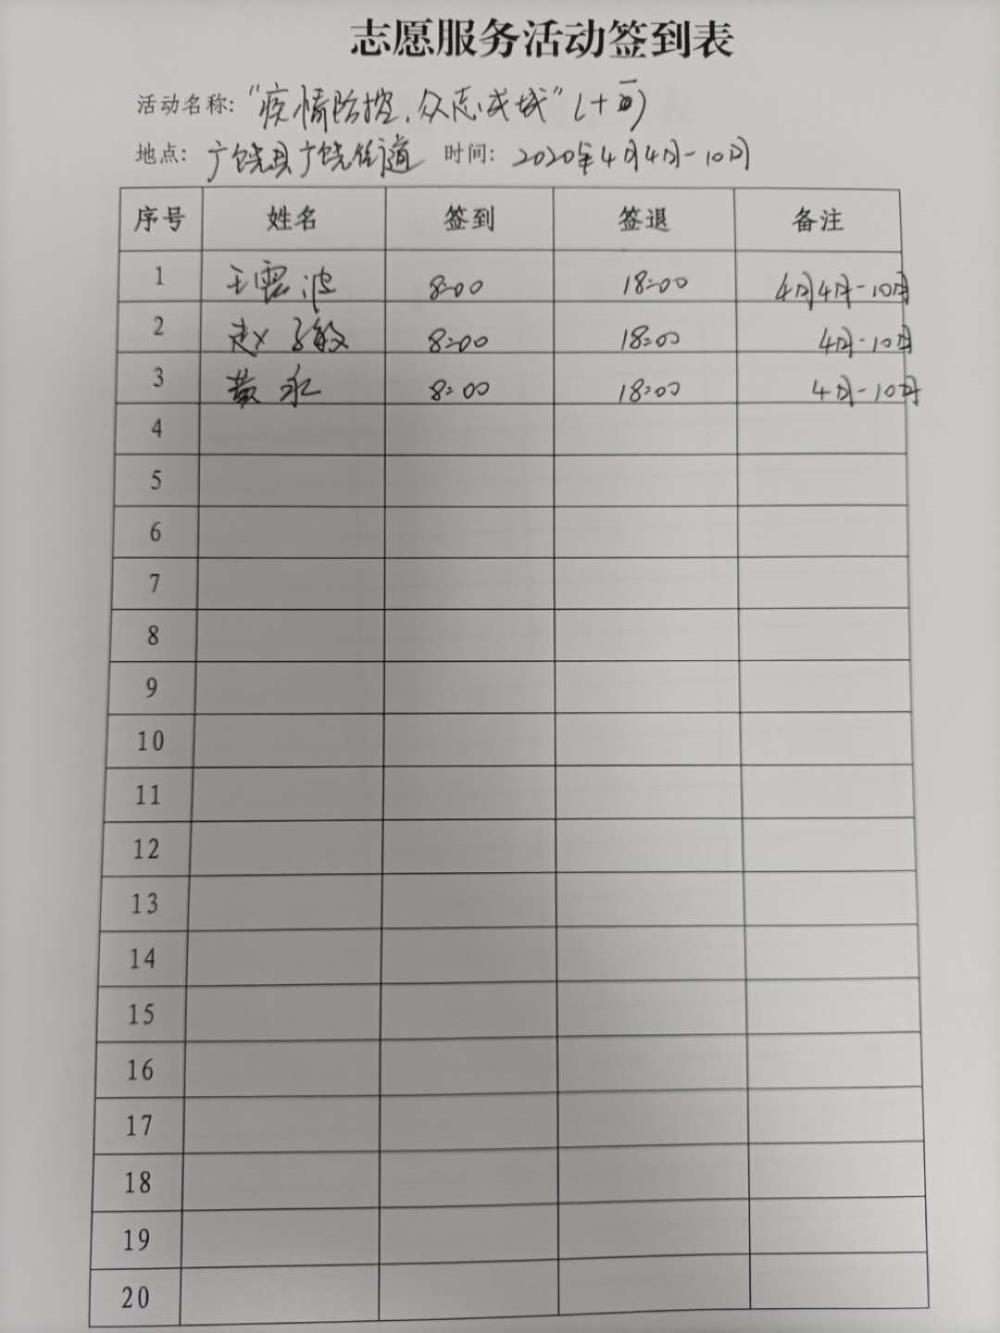 志愿服务活动签到表
活动名称: "疫情防控,众志成城" (十四)
地点: 广饶县广饶街道 时间: 2020年4月4日-10日
序号 姓名 签到 签退 备注
1 王雪波 8:00 18:00 4月4日-10日
2 赵子敏 8:00 18:00 4日-10日
3 黄永 8:00 18:00 4日-10日
4
5
6
7
8
9
10
11
12
13
14
15
16
17
18
19
20